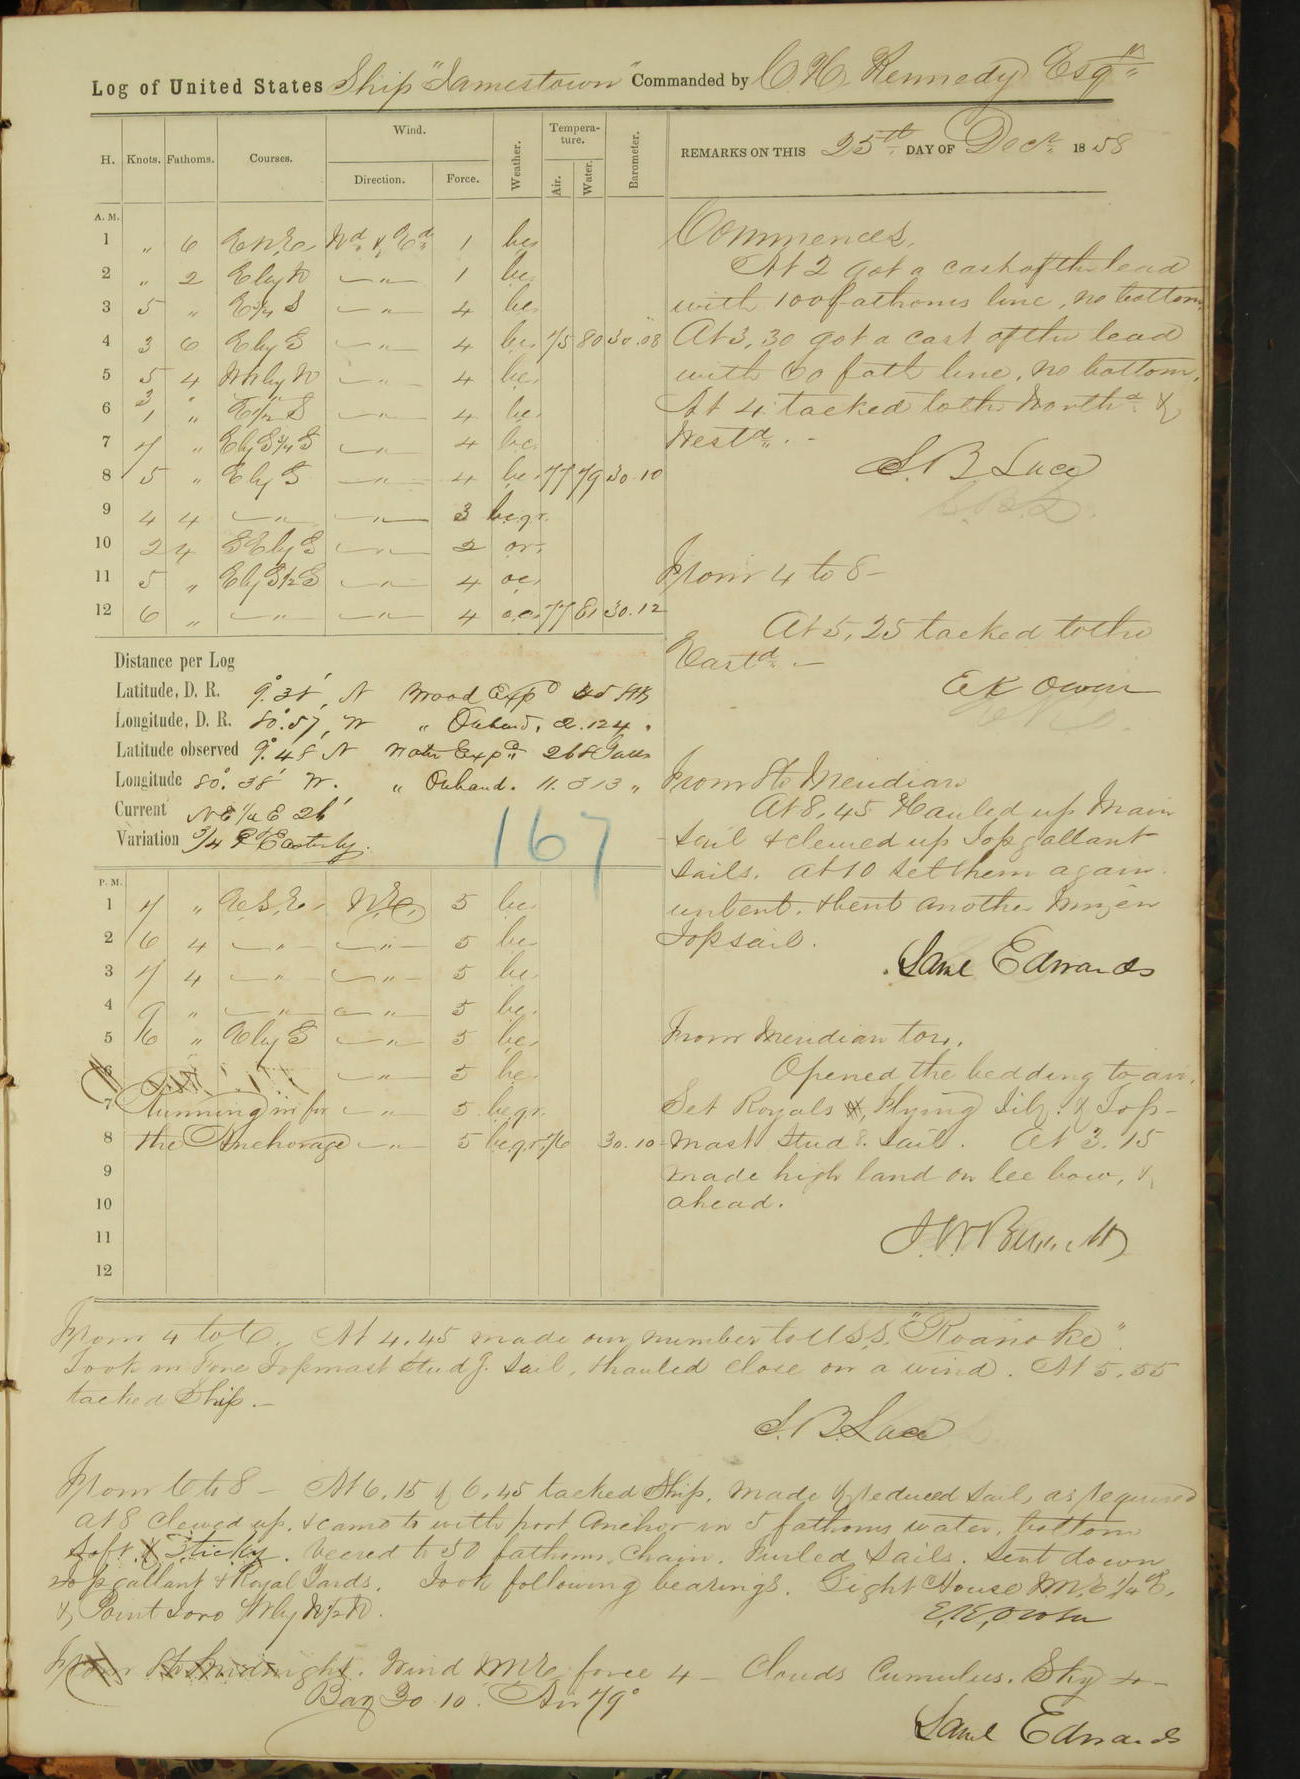 Log of United States Ship "Jamestown" Commanded by C. H. Kennedy Esqr
H. Knots. Fathoms. Courses. Wind. Direction. Force. Weather. Tempera-ture. Air. Water. Barometer.
REMARKS ON THIS 25th DAY OF Decr 1858
A. M.
1 " 6 E.N.E. Nd & Ed 1 bc.
2 " 2 E by N " 1 bc.
3 5 " E 3/4 S " 4 bc.
4 3 6 E by S " 4 bc. 75 80 30.08
5 5 4 NW by N " 4 bc.
6 " E 1/2 S " 4 bc.
7 7 " E by S 3/4 S " 4 bc.
8 5 " E by S " 4 bc. 77 79 30.10
9 4 4 " " 3 bcqr.
10 2 4 SE by S " 2 or.
11 5 " E by S 1/2 S " 4 oc.
12 6 " " " 4 oc. 77 81 30.12
Commences.
At 2 got a cast of the lead
with 100 fathoms line, no bottom.
At 3,30 got a cast of the lead
with 60 fath line, no bottom.
At 4 tacked to the Northd &
Westd. -
S. B. Luce
From 4 to 8 -
At 5,25 tacked to the
Eastd. -
E K Owen
Distance per Log
Latitude, D. R. 9°.38', N Wood Expd
Longitude, D. R. 80°.57, W " Onhand, 2.124 "
Latitude observed 9°.48 N Water Expd 268 Galls
Longitude 80°. 38' W. " Onhand. 11.313 "
Current NE 1/4 E 26'
Variation 3/4 Pt Easterly.
167
From 8 to Meridian
At 8,45 Hauled up Main
sail & clewed up Topgallant
sails. At 10 set them again.
unbent. & bent another Mizen
Topsail.
Saml Edwards
P. M.
1 7 " E.S.E. N.E. 5 bc.
2 6 4 " " 5 bc.
3 7 4 " " 5 bc.
4 9 " " " 5 bc.
5 " E by S " 5 bc.
6 " 5 bc.
7 Running in for " 5 bcqr.
8 the Anchorage " 5 bcqr 76 30.10
9
10
11
12
From Meridian to 4.
Opened the bedding to air.
Set Royals, Flying Jib, & Top-
mast Studg. Sail. At 3.15
made high land on lee bow, &
ahead.
From 4 to 6. At 4.45 made our number to U.S.S. "Roanoke".
Took in Fore Topmast Studg. Sail, & hauled close on a wind. At 5.55
tacked Ship. -
S. B. Luce
From 6 to 8 - At 6.15 & 6.45 tacked Ship. Made & reduced sail, as required
at 8 clewed up, & came to with port Anchor in 5 fathoms water, bottom
soft & Sticky. Veered to 30 fathoms Chain. Furled Sails. Sent down
Topgallant & Royal Yards. Took following bearings. Light House N.N.E 1/4 E.
& Point Toro W by N 1/2 N.
E. K. Owen
From 8 to Midnight. Wind NNE, force 4 - Clouds Cumulus. Sky
Bar 30.10. Air 79°
Saml Edwards